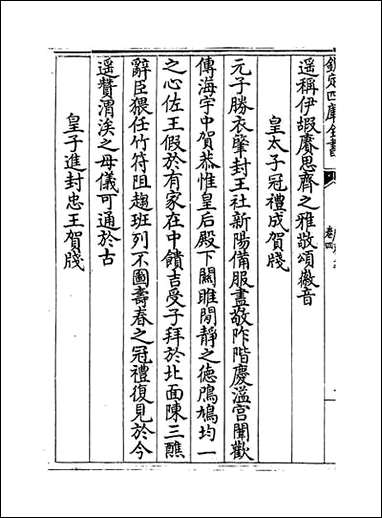 欽定四庫全書
卷四
遥稱伊嘏賡思齊之雅敬頌徽音
皇太子冠禮成賀牋
元子勝衣肇封王社新陽備服盡敬阼階慶溢宫闈歡
傳海宇中賀恭惟皇后殿下闗雎閒静之德鳲鳩均一
之心佐王假於有家在中饋吉受子拜於北面陳三醮
辭臣猥任竹符阻趨班列不圖壽春之冠禮復見於今
遥贊渭涘之母儀可通於古
皇子進封忠王賀牋